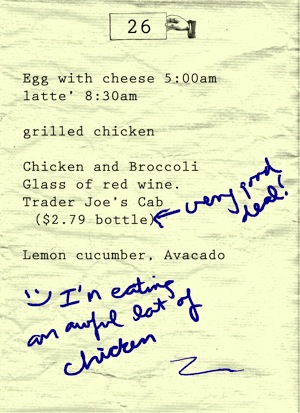 26
Egg with cheese 5:00am
latte’ 8:30am
grilled chicken
Chicken and Broccoli
Glass of red wine.
Trader Joe’s Cab
($2.79 bottle)
very good
deal!
Lemon cucumber, Avacado
I'n eating
an awful lot of
chicken